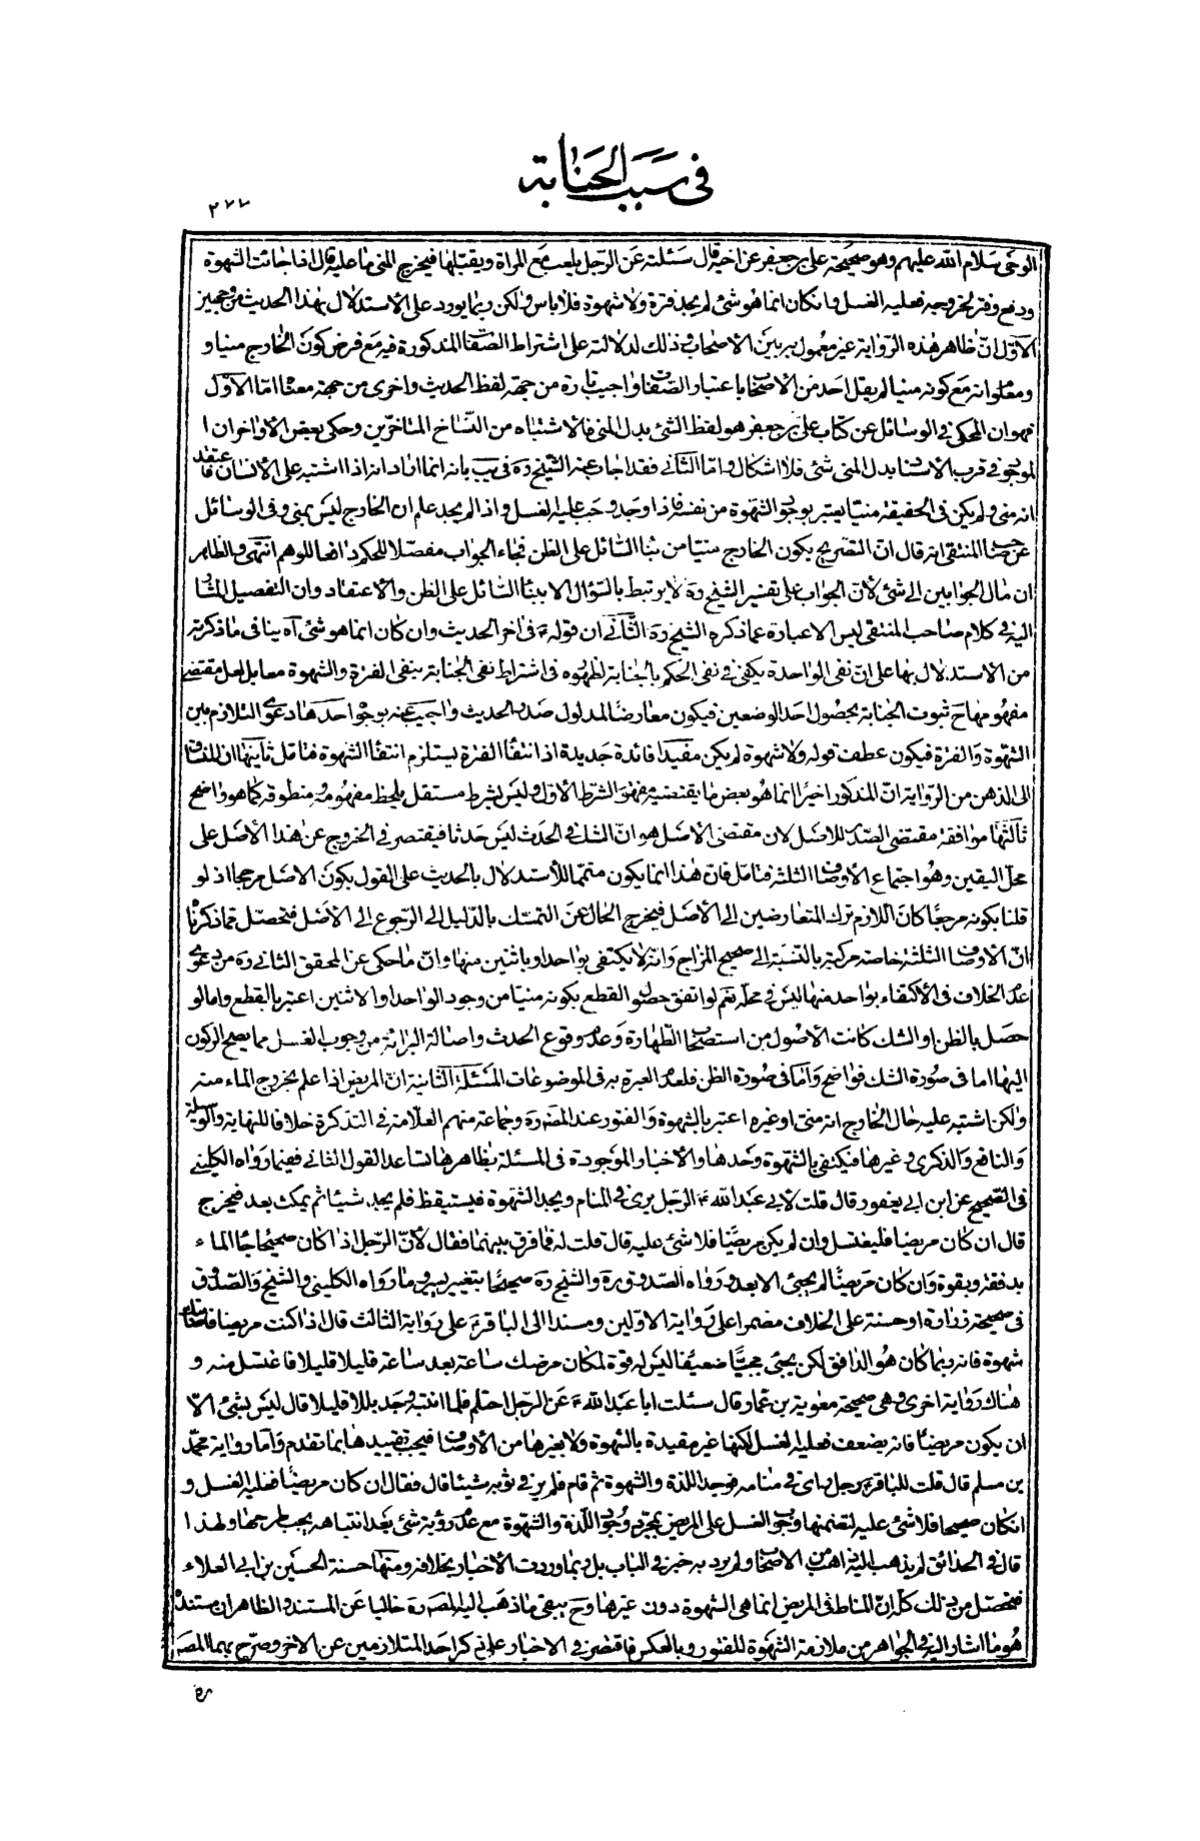 في سبب الجنابة
٢٧٧
الوحي سلام الله عليهم وهو صحيحة علي بن جعفر عن اخيه قال سئلته عن الرجل يلعب مع المراة ويقبلها فيخرج المني ما عليه قال اذا جائت الشهوة
ودفع وفتر لخروجه فعليه الغسل وانكان انما هو شئ لم يجد فترة ولا شهوة فلا باس ولكن ربما يورد على الاستدلال بهذا الحديث من وجهين
الاول ان ظاهر هذه الرواية غير معمول به بين الاصحاب وذلك لدلالته على اشتراط الصفات المذكورة فيه مع فرض كون الخارج منيا و
ومعلوم انه مع كونه منيا لم يقل احد من الاصحاب باعتبار الصفات واجيب تارة من جهة لفظ الحديث واخرى من جهة معناه اما الاول
فهو ان المحكي في الوسائل عن كتاب علي بن جعفر هو لفظ الشئ بدل المني فالاشتباه من النساخ المتاخرين وحكى بعض الاواخر ان ا
لموجود في قرب الاسناد بدل المني شئ فلا اشكال واما الثاني فقد اجاب عنه الشيخ ره في يب بانه انما اراد انه اذا اشتبه على الانسان فاعتقد
انه مني ولم يكن في الحقيقة منيا يعتبر بوجود الشهوة من نفسه فاذا وجد وجب عليه الغسل واذا لم يجد علم ان الخارج ليس بمني وفي الوسائل
عن صاحب المنتقى انه قال ان التصريح بكون الخارج منيا من بناء السائل على الظن فجاء الجواب مفصلا للحكم دافعا للوهم انتهى والظاهر
ان مال الجوابين الى شئ لان الجواب على تفسير الشيخ ره لا يرتبط بالسؤال الا ببناء السائل على الظن والاعتقاد وان التفصيل المشار
اليه في كلام صاحب المنتقى ليس الا عبارة عما ذكره الشيخ ره الثاني ان قوله ع في اخر الحديث وان كان انما هو شئ آه ينافي ما ذكرته
من الاستدلال بها على ان نفي الواحدة يكفي في نفي الحكم بالجنابة لظهوره في اشتراط نفي الجنابة بنفي الفترة والشهوة معا بل لعل مقتضى
مفهومها ح ثبوت الجنابة بحصول احد الوضعين فيكون معارضا لمدلول صدر الحديث واجيب عنه بوجوه احدها دعوى التلازم بين
الشهوة والفترة فيكون عطف قوله ولا شهوة لم يكن مفيدا فائدة جديدة اذ انتفاء الفترة يستلزم انتفاء الشهوة فتامل ثانيها ان المنساق
الى الذهن من الرواية ان المذكور اخيرا انما هو بعض ما يقتضيه مفهوم الشرط الاول وليس بشرط مستقل يلحظ مفهومه ومنطوقه كما هو واضح
ثالثها موافقة مقتضى الصدر للاصل لان مقتضى الاصل هو ان الشك في الحدث ليس حدثا فيقتصر في الخروج عن هذا الاصل على
محل اليقين وهو اجتماع الاوصاف الثلثة فتامل فان هذا انما يكون متمما للاستدلال بالحديث على القول بكون الاصل مرجحا اذ لو
قلنا بكونه مرجعا كان اللازم ترك المتعارضين الى الاصل فيخرج الحال عن التمسك بالدليل الى الرجوع الى الاصل فتحصل مما ذكرنا
ان الاوصاف الثلثة خاصة مركبة بالنسبة الى صحيح المزاج وانه لا يكتفي بواحد او باثنين منها وان ما حكي عن المحقق الثاني ره من دعوى
عدم الخلاف في الاكتفاء بواحد منها ليس في محله نعم لو اتفق حصول القطع بكونه منيا من وجود الواحد او الاثنين اعتبر بالقطع واما لو
حصل بالظن او الشك كانت الاصول من استصحاب الطهارة وعدم وقوع الحدث واصالة البرائة من وجوب الغسل مما يصح الركون
اليها اما في صورة الشك فواضح واما في صورة الظن فلعدم العبرة به في الموضوعات المسئلة الثانية ان المريض اذا علم بخروج الماء منه
ولكن اشتبه عليه حال الخارج انه مني او غيره اعتبر بالشهوة والفتور عند المص ره وجماعة منهم العلامة في التذكرة خلافا للنهاية والوسيلة
والنافع والذكرى وغيرها فيكتفي بالشهوة وحدها والاخبار الموجودة في المسئلة بظاهرها تساعد القول الثاني فمنها رواه الكليني
في الصحيح عن ابن ابي يعفور قال قلت لابي عبد الله ع الرجل يرى في المنام ويجد الشهوة فيستيقظ فلم يجد شيئا ثم يمكث بعد فيخرج
قال ان كان مريضا فليغتسل وان لم يكن مريضا فلا شئ عليه قال قلت له فما فرق بينهما فقال لان الرجل اذا كان صحيحا جاء الماء
بدفقة وبقوة وان كان مريضا لم يجئ الا بعد ورواه الصدوق ره والشيخ ره صحيحا بتغيير يسير وما رواه الكليني والشيخ والصدوق
في صحيحة زرارة او حسنة على الخلاف مضمرا على رواية الاولين ومسندا الى الباقر ع على رواية الثالث قال اذا كنت مريضا فاصابتك
شهوة فانه ربما كان هو الدافق لكن يجئ مجيئا ضعيفا ليس له قوة لمكان مرضك ساعة بعد ساعة قليلا قليلا فاغتسل منه و
هناك رواية اخرى وهي صحيحة معوية بن عمار قال سئلت ابا عبد الله ع عن الرجل احتلم فلما انتبه وجد بللا قليلا قال ليس بشئ الا
ان يكون مريضا فانه يضعف فعليه الغسل لكنها غير مقيدة بالشهوة ولا بغيرها من الاوصاف فيجب تقييدها بما تقدم واما رواية محمد
بن مسلم قال قلت للباقر ع رجل راى في منامه فوجد اللذة والشهوة ثم قام فلم ير في ثوبه شيئا قال فقال ان كان مريضا فعليه الغسل و
انكان صحيحا فلا شئ عليه لتضمنها وجوب الغسل على المريض بمجرد وجود اللذة والشهوة مع عدم رؤية شئ بعد انتباهه يجب طرحها ولهذا
قال في الحدائق لم يذهب اليه ذاهب من الاصحاب ولم يرد به خبر في الباب بل ربما وردت الاخبار بخلافه ومنها حسنة الحسين بن ابي العلاء
فتحصل من ذلك كله ان المناط في المريض انما هي الشهوة دون غيرها وح يبقى ما ذهب اليه المص ره خاليا عن المستند والظاهر ان مستنده
هو ما اشار اليه في الجواهر من ملازمة الشهوة للفتور وبالعكس فاقتصر في الاخبار على ذكر احد المتلازمين عن الاخر وصرح بهما المص
ره